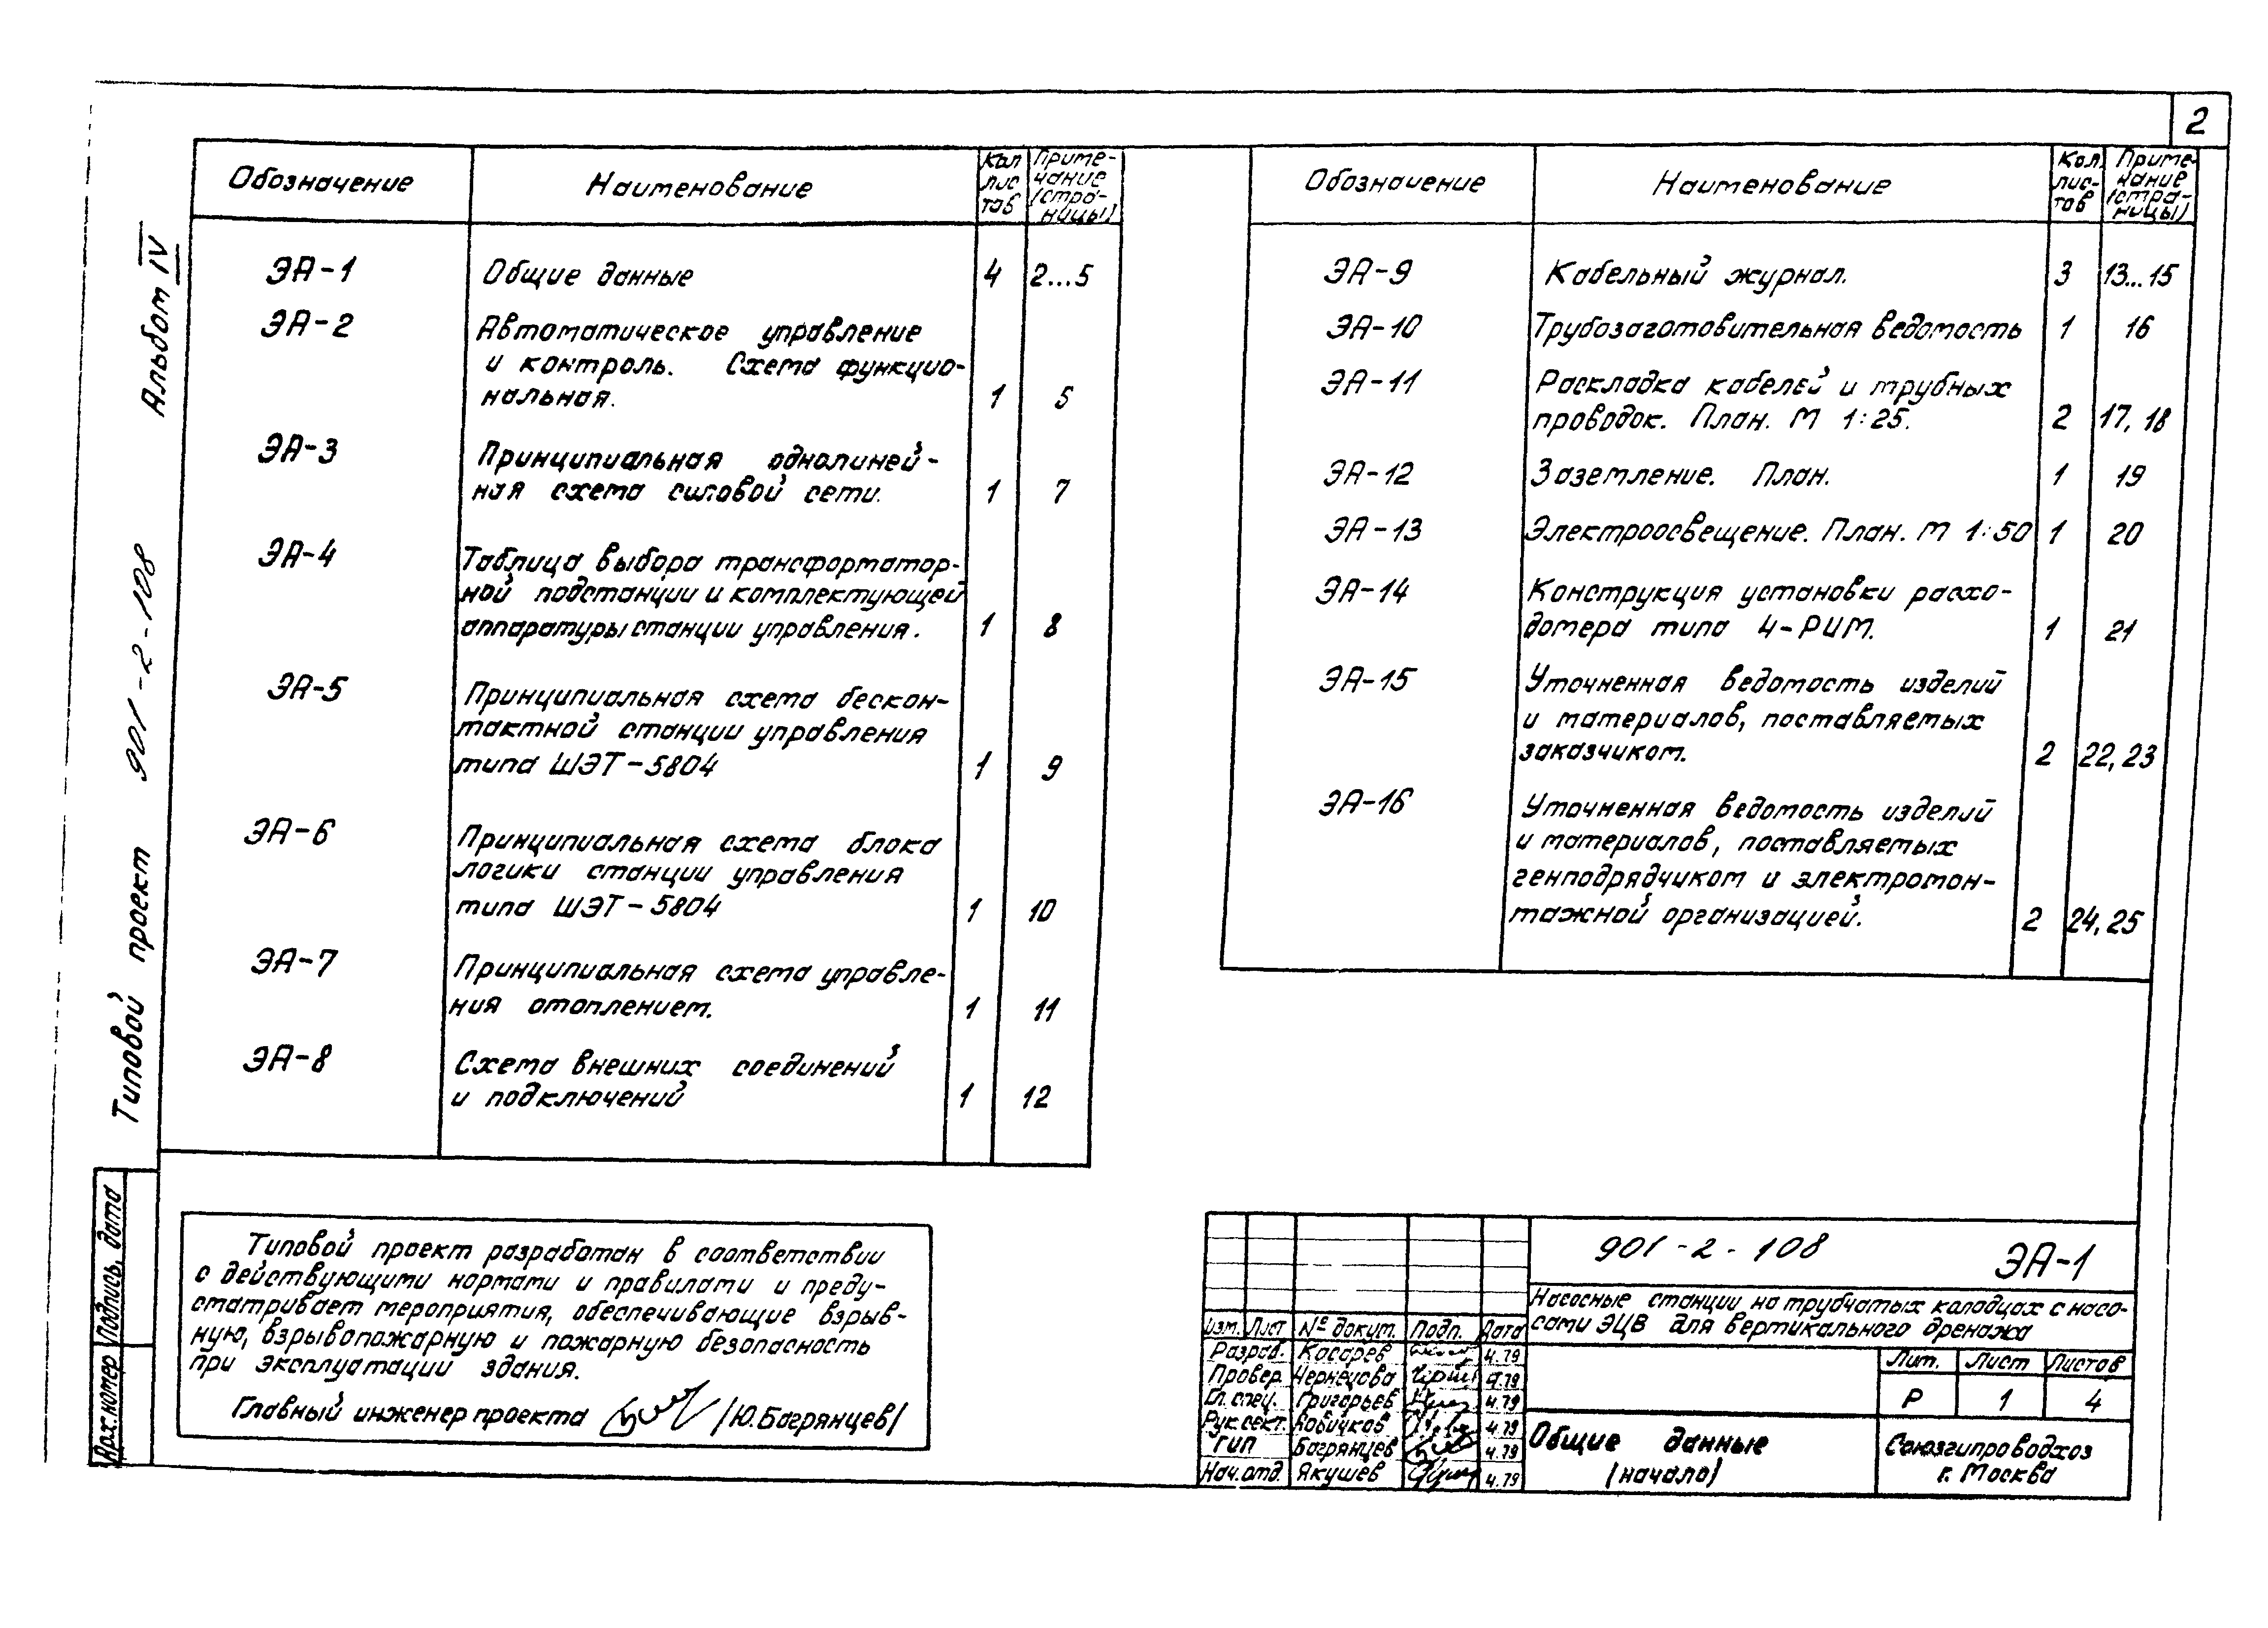 2
Альбом IV
Типовой проект 901-2-108
Обозначение
Наименование
Кол
лис
тов
Приме-
чание
(стра-
ницы)
ЭА-1
Общие данные
4
2...5
ЭА-2
Автоматическое управление
и контроль. Схема функцио-
нальная.
1
5
ЭА-3
Принципиальная однолиней-
ная схема силовой сети.
1
7
ЭА-4
Таблица выбора трансформатор-
ной подстанции и комплектующей
аппаратуры станции управления.
1
8
ЭА-5
Принципиальная схема бескон-
тактной станции управления
типа ШЭТ-5804
1
9
ЭА-6
Принципиальная схема блока
логики станции управления
типа ШЭТ-5804
1
10
ЭА-7
Принципиальная схема управле-
ния отоплением.
1
11
ЭА-8
Схема внешних соединений
и подключений
1
12
Обозначение
Наименование
Кол.
лис-
тов
Приме-
чание
(стра-
ницы)
ЭА-9
Кабельный журнал.
3
13...15
ЭА-10
Трубозаготовительная ведомость
1
16
ЭА-11
Раскладка кабелей и трубных
проводок. План. М 1:25.
2
17, 18
ЭА-12
Заземление. План.
1
19
ЭА-13
Электроосвещение. План. М 1:50
1
20
ЭА-14
Конструкция установки расхо-
домера типа 4-РИМ.
1
21
ЭА-15
Уточненная ведомость изделий
и материалов, поставляемых
заказчиком.
2
22, 23
ЭА-16
Уточненная ведомость изделий
и материалов, поставляемых
генподрядчиком и электромон-
тажной организацией.
2
24, 25
Подпись, дата
Арх. номер
Типовой проект разработан в соответствии
с действующими нормами и правилами и преду-
сматривает мероприятия, обеспечивающие взрыв-
ную, взрывопожарную и пожарную безопасность
при эксплуатации здания.
Главный инженер проекта /Ю.Багрянцев/
Изм. Лист № докум. Подп. Дата
Разраб. Косарев 4.79
Провер. Чернецова 4.79
Гл.спец. Григорьев 4.79
Рук.сект. 4.79
ГИП Багрянцев 4.79
Нач.отд. Якушев 4.79
901-2-108 ЭА-1
Насосные станции на трубчатых колодцах с насо-
сами ЭЦВ для вертикального дренажа
Лит. Лист Листов
Р 1 4
Общие данные
(начало)
Союзгипроводхоз
г. Москва